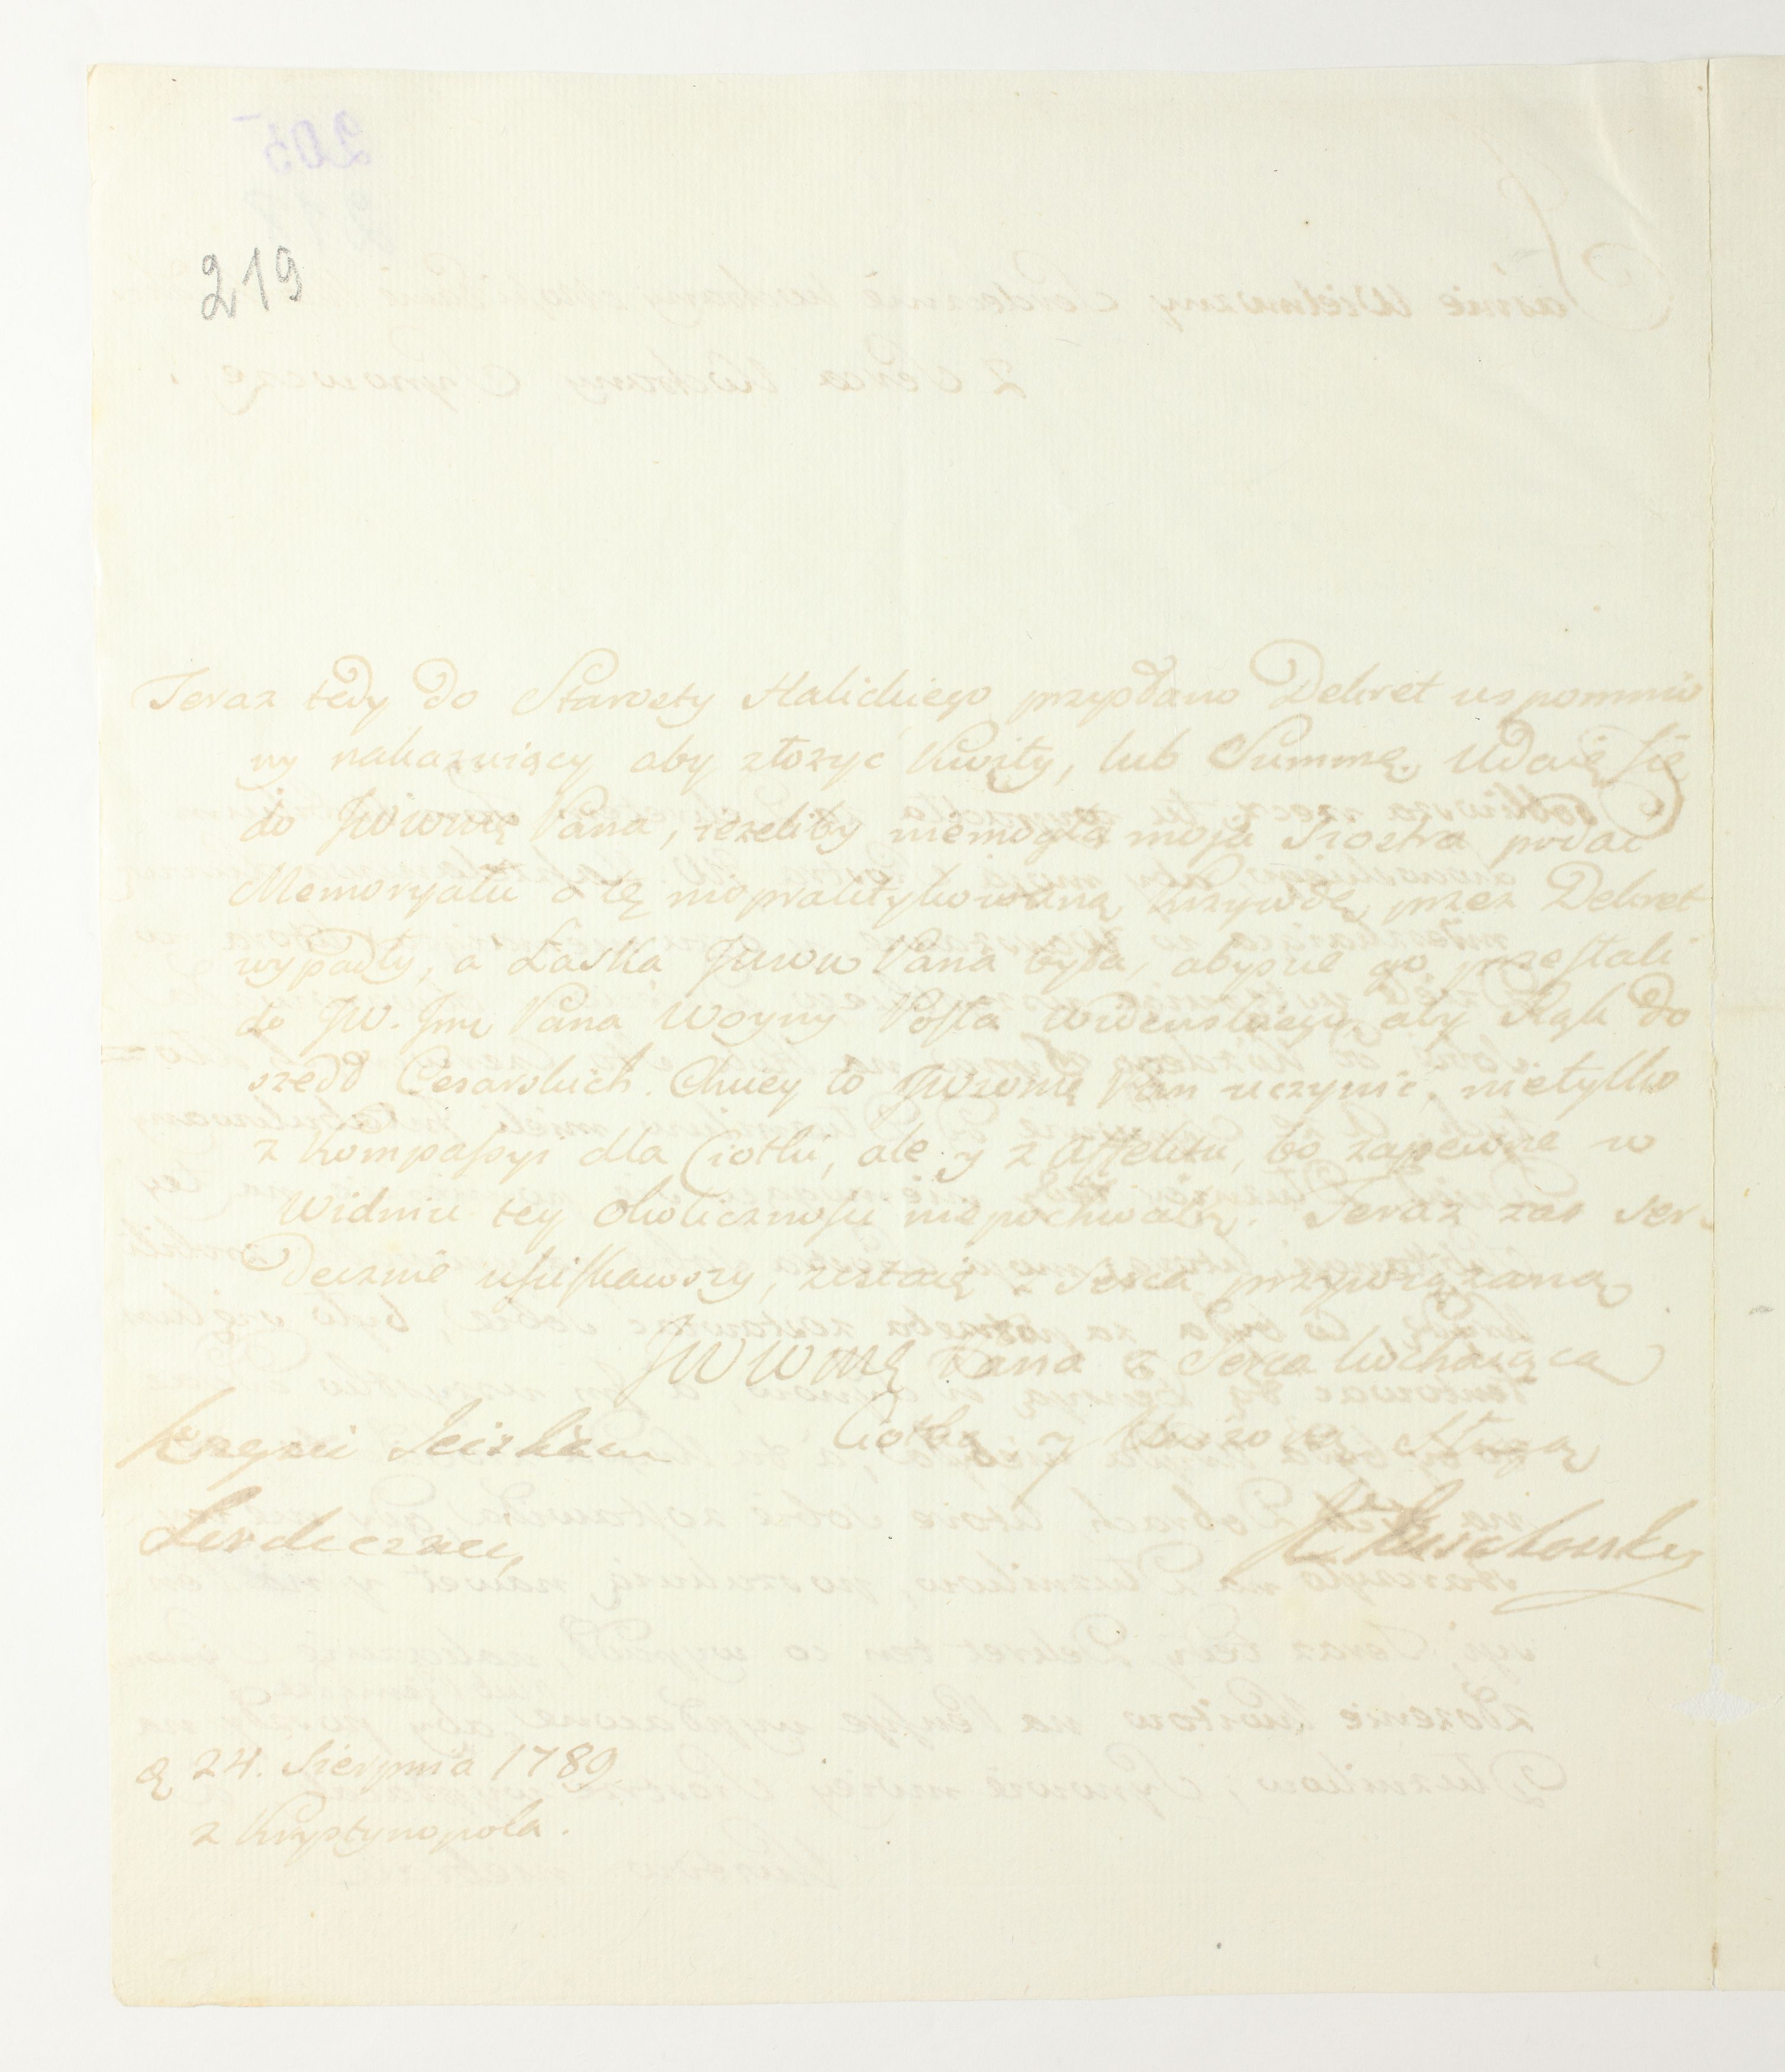 219
Teraz tedy do Starosty Halickiego przysłano Dekret wspomnio
ny nakazuiący aby złożyć Kwity, lub Summę, Udaię się
do JWWmę Pana, ieżeliby niemogła moja Siostra podać
Memoryału o tę niepraktykowaną krzywdę przez Dekret
wypadły, a Łaska JWWw Pana była, abyście go przesłali
do JW. Jmę Pana Woyny Posła Wideńskiego, aby Rąk do
szedł Cesarskich. Chciey to JWWmę Pan uczynić, nietylko
z Kompassyi dla Ciotki, ale y z affektu, bo zapewne w
Widniu tey okolicznośći niepochwalą. Teraz zaś ser-
decznie uściskawszy, zostaię z Serca przywiązaną
JWWmę Pana z Serca kochaiąca
Ciotką y Sługą
Sciskam
Serdecznie
24. Sierpnia 1789
z Krystynopola.